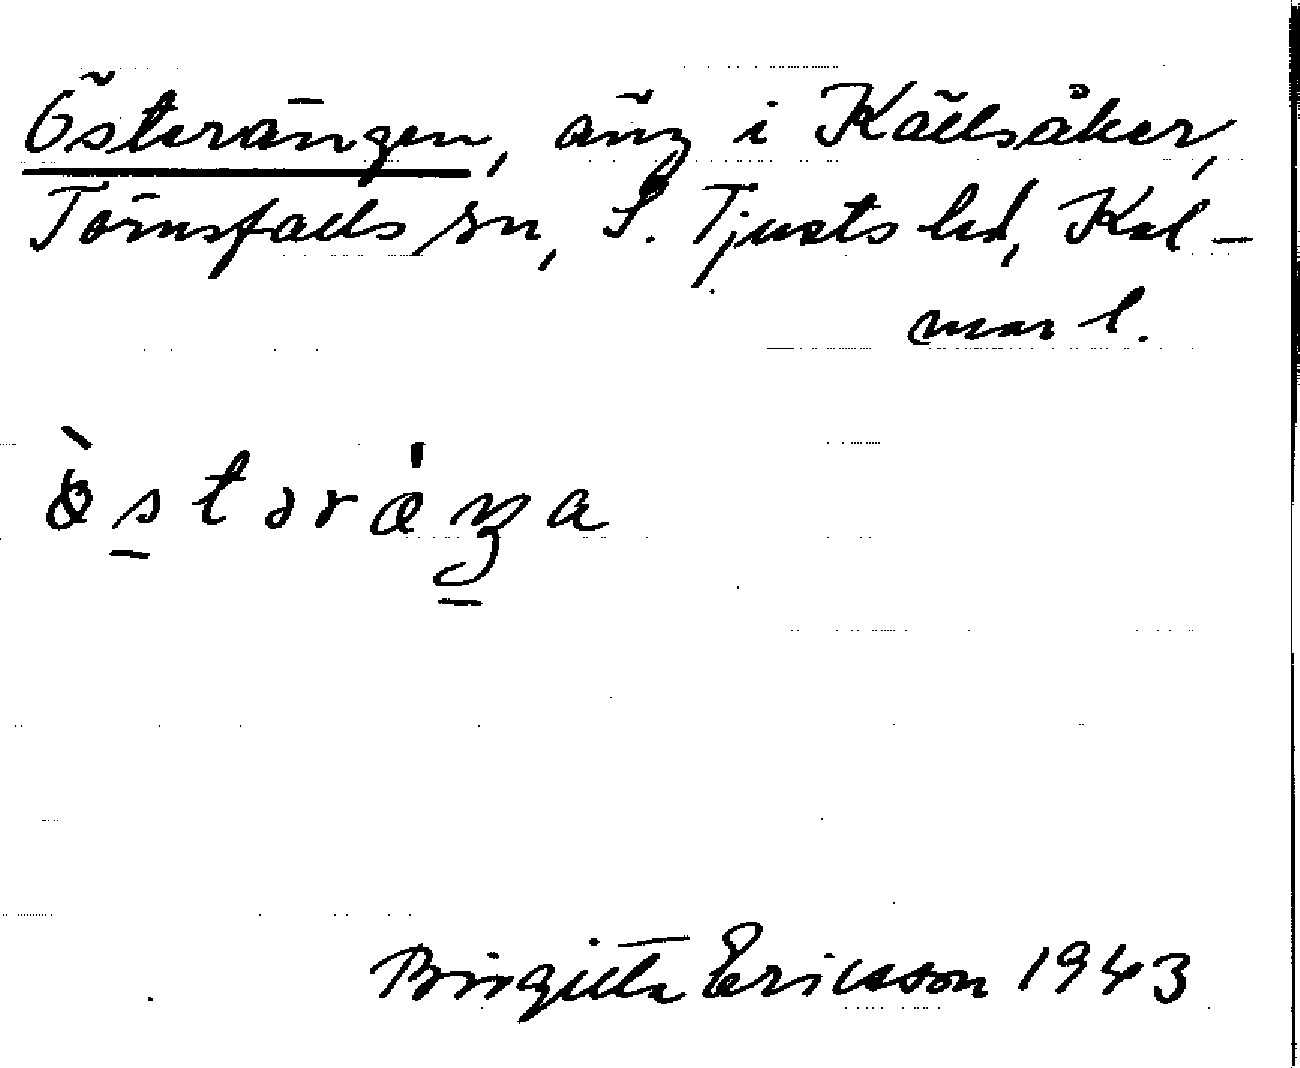 Österängen, äng i Källsåker,
Törnsfalls sn, S. Tjusts hd, Kal-
mar l.
Birgitta Ericsson 1943